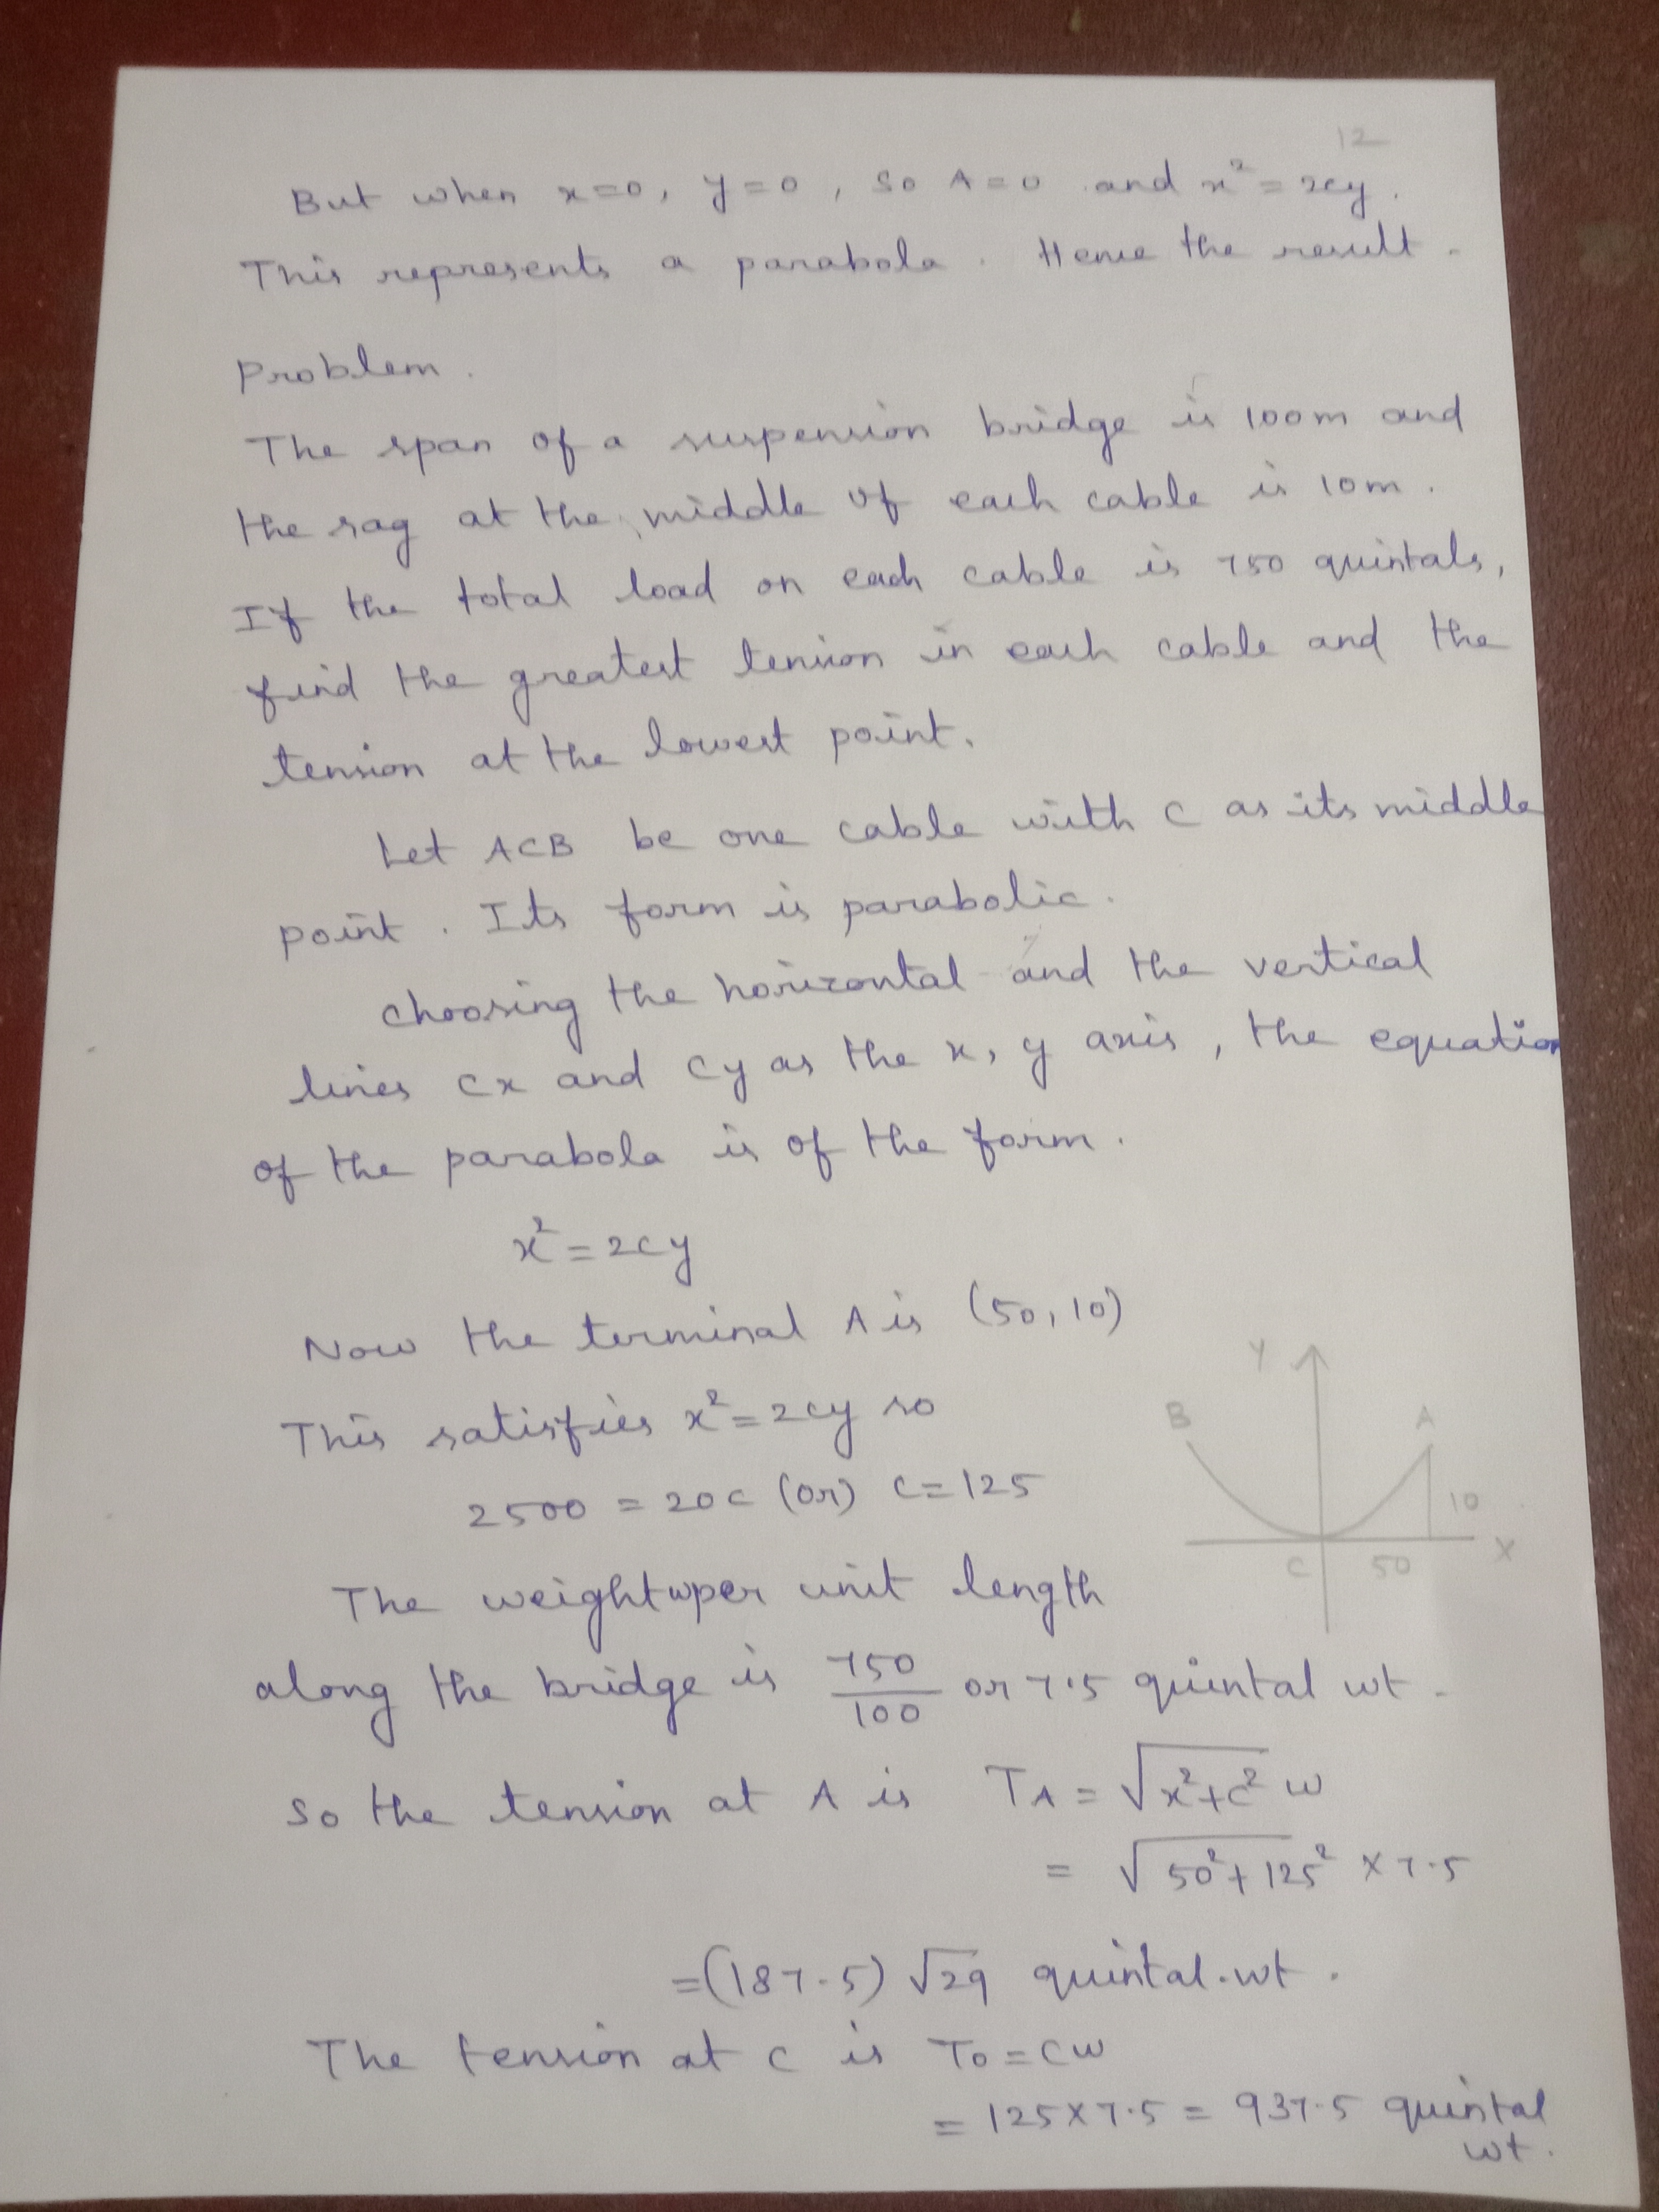 12
But when x=0, y=0, So A=0 and x²=2cy.
This represents a parabola. Hence the result.
Problem.
The span of a suspension bridge is 100m and
the sag at the middle of each cable is 10m.
If the total load on each cable is 750 quintals,
find the greatest tension in each cable and the
tension at the lowest point.
Let ACB be one cable with C as its middle
point. Its form is parabolic.
choosing the horizontal and the vertical
lines cx and cy as the x, y axis, the equation
of the parabola is of the form.
x²=2cy
Now the terminal A is (50,10)
This satisfies x²=2cy so
2500 = 20c (or) c=125
Y
B
A
10
C
50
X
The weight w per unit length
along the bridge is 750/100 or 7.5 quintal wt.
So the tension at A is T_A = √(x²+c²) w
= √(50²+125²) × 7.5
=(187.5) √29 quintal.wt.
The tension at c is T₀=cw
= 125×7.5 = 937.5 quintal
wt.